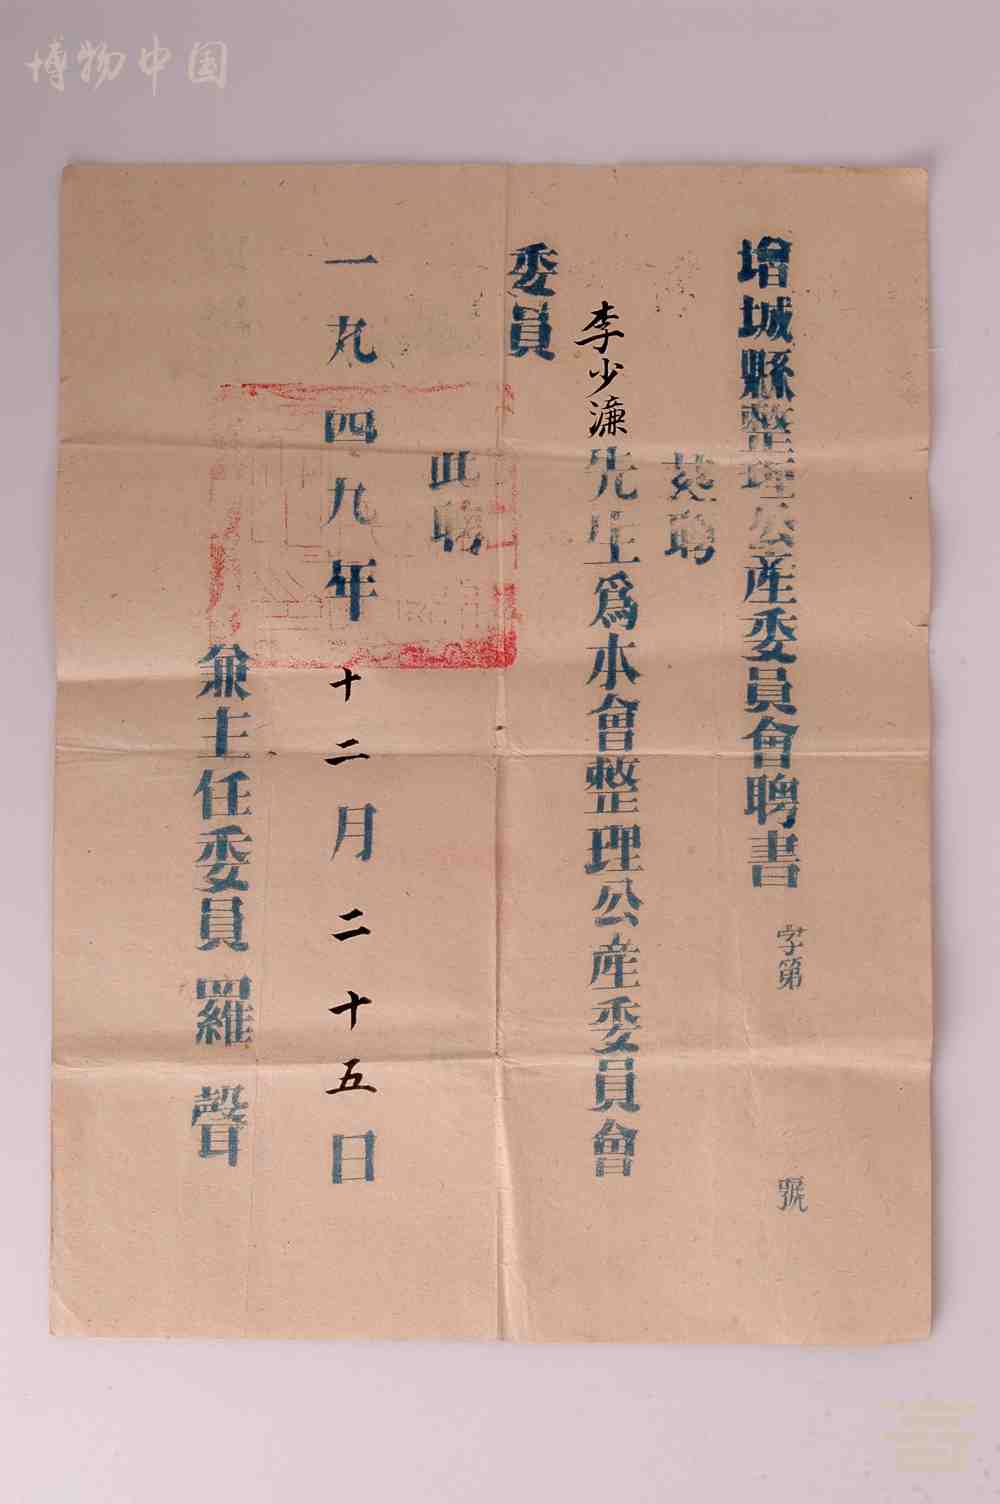 博物中国
增城縣整理公產委員會聘書 字第 號
茲聘
李少濂先生爲本會整理公產委員會
委員
此聘
一九四九年十二月二十五日
兼主任委員 羅聲